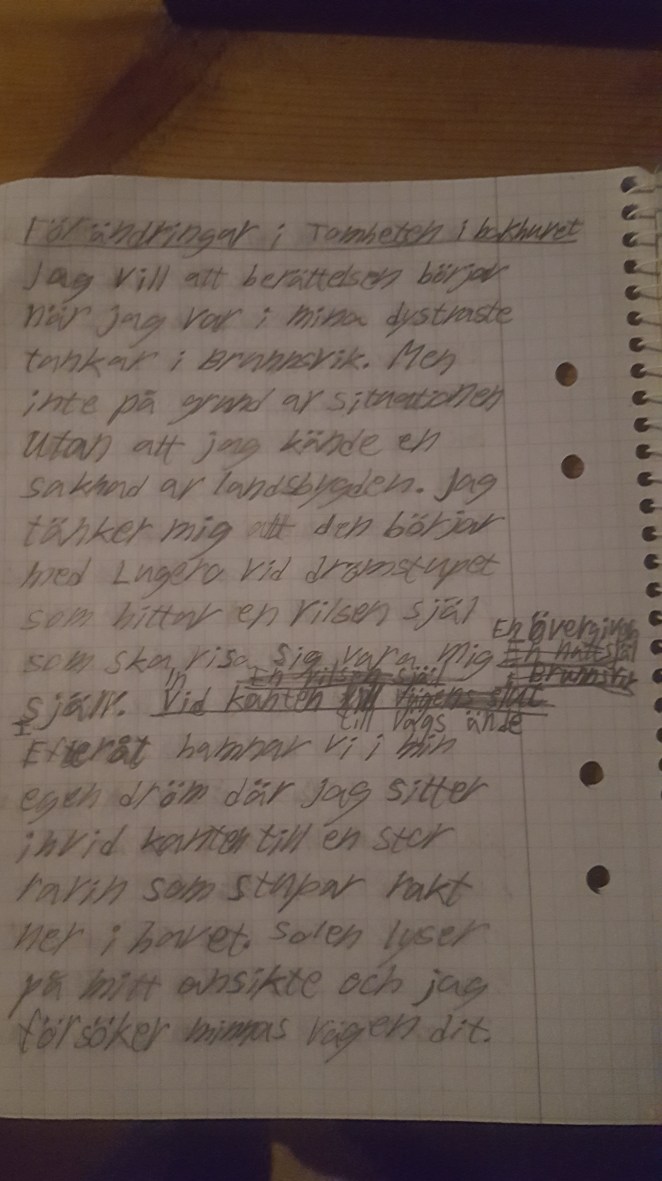 Förändringar i Tomheten i bakhuvet
Jag vill att berättelsen börjar
när jag var i mina dystraste
tankar i Brunnsvik. Men
inte på grund av situationen
utan att jag kände en
saknad av landsbygden. Jag
tänker mig att den börjar
med Lugera vid drömstupet
som hittar en vilsen själ
En övergiven
som ska visa sig vara mig
En nattsjäl
i Brunnsvik
in En vilsen själ
själv. Vid kanten till vägens slut
till vägs ände
Efteråt hamnar vi i min
egen dröm där jag sitter
invid kanten till en stor
ravin som stupar rakt
ner i havet. Solen lyser
på mitt ansikte och jag
försöker minnas vägen dit.